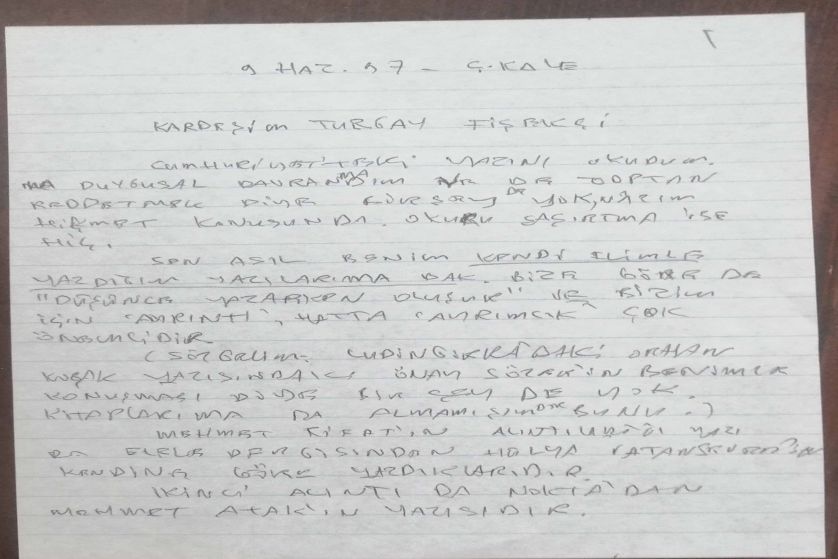 1
9 HAZ. 97 - Ç.KALE
KARDEŞİM TURGAY FİŞEKÇİ
CUMHURİYET'TEKİ YAZINI OKUDUM.
DUYGUSAL DAVRANMA DE TOPTAN
REDDETMEK DİYE BİR ŞEY DE YOK, NAZIM
HİKMET KONUSUNDA. OKURU ŞAŞIRTMA İSE
HİÇ.
SEN ASIL BENİM KENDİ ELİMLE
YAZDIĞIM YAZILARIMA BAK. BİZE GÖRE DE
"DÜŞÜNCE YAZARKEN OLUŞUR" VE BİZİM
İÇİN 'AYRINTI', HATTA 'AYRIMCIK' ÇOK
ÖNEMLİDİR.
(SÖZGELİMİ, LUDİNGIRRA'DAKİ ORHAN
KOÇAK YAZISINDAKİ ÖNAY SÖZER'İN BENİMLE
KONUŞMASI DİYE BİR ŞEY DE YOK.
KİTAPLARIMA DA ALMAMIŞIMDIR BUNU.)
MEHMET RİFAT'IN ALINTILADIĞI YAZI
DA ELELE DERGİSİNDEN HÜLYA VATANSEVER'İN
KENDİNE GÖRE YAZDIKLARIDIR.
İKİNCİ ALINTI DA NOKTA'DAN
MEHMET ATAK'IN YAZISIDIR.